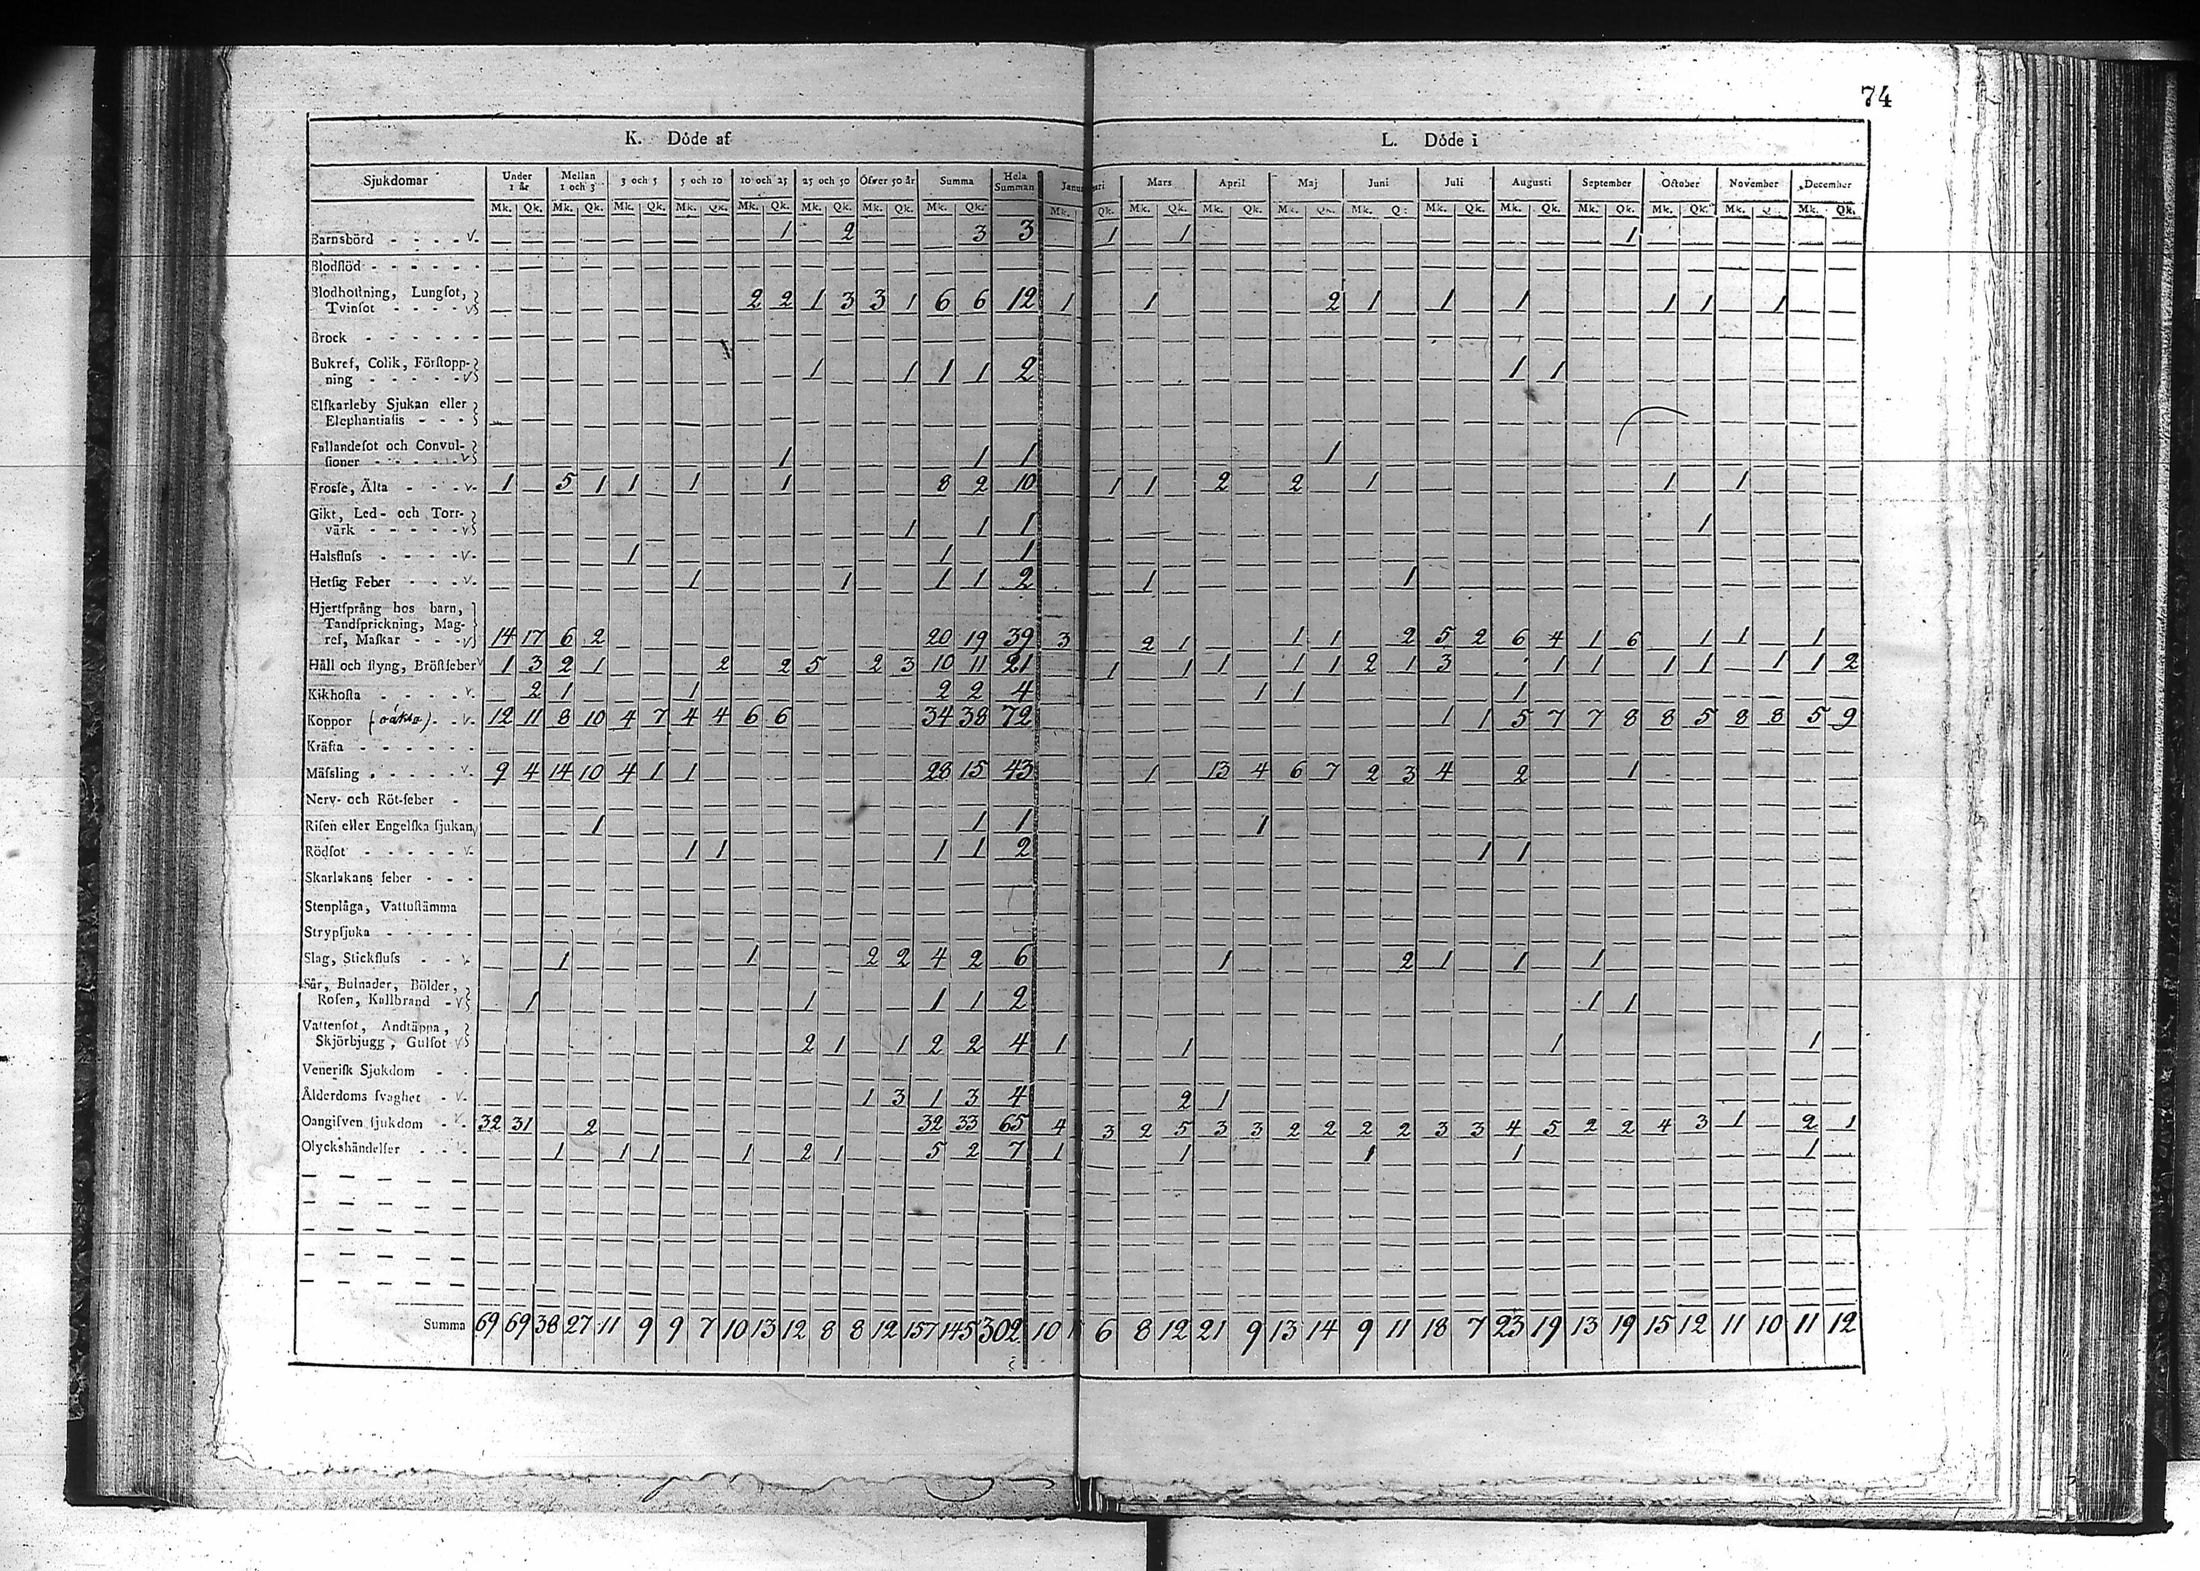 74
K. Döde af
L. Döde i
Sjukdomar Under 1 år Mellan 1 och 3 3 och 5 5 och 10 10 och 25 25 och 50 Öfwer 50 år Summa Hela Summan Mars April Maj Juni Juli Augusti September October November December
Mk. Qk. Mk. Qk. Mk. Qk. Mk. Qk. Mk. Qk. Mk. Qk. Mk. Qk. Mk. Qk. Mk. Qk. Mk. Qk. Mk. Qk. Mk. Mk. Mk. Qk. Mk. Qk. Mk. Qk. Mk. Qk. Mk. Mk. Qk.
Barnsbörd - - - - v - 1 2 3 3 1 1 1
Blodflöd - - - - - -
Blodhostning, Lungsot,
Tvinsot - - - - v 2 2 1 3 3 1 6 6 12 1 1 2 1 1 1 1 1 1
Brock - - - - - -
Bukref, Colik, Förstopp-
ning - - - - - v 1 1 1 1 2 1 1
Elfkarleby Sjukan eller
Elephantiasis - - -
Fallandesot och Convul-
sioner - - - - - v 1 1 1 1
Frosse, Älta - - - v - 1 5 1 1 1 1 8 2 10 1 1 2 2 1 1 1
Gikt, Led- och Torr-
värk - - - - - v 1 1 1 1
Halsfluss - - - - v - 1 1 1
Hetsig Feber - - - v - 1 1 1 1 2 1 1
Hjertsprång hos barn,
Tandsprickning, Mag-
ref, Maskar - - - v 14 17 6 2 20 19 39 3 2 1 1 1 2 5 2 6 4 1 6 1 1 1
Håll och styng, Bröstfeber v 1 3 2 1 2 2 5 2 3 10 11 21 1 1 1 1 1 2 1 3 1 1 1 1 1 1 2
Kikhosta - - - - v - 2 1 1 2 2 4 1 1 1
Koppor - - v - 12 11 8 10 4 7 4 4 6 6 34 38 72 1 1 5 7 7 8 8 5 8 8 5 9
Kräfta - - - - - -
Mässling - - - - - v 9 4 14 10 4 1 1 28 15 43 1 13 4 6 7 2 3 4 2 1
Nerv- och Röt-feber -
Risen eller Engelska sjukan 1 1 1 1
Rödsot - - - - - v 1 1 1 1 2 1 1
Skarlakans feber - - -
Stenplåga, Vattustämma
Strypsjuka - - - - -
Slag, Stickfluss - - v 1 1 2 2 4 2 6 1 2 1 1 1
Sår, Bulnader, Bölder,
Rosen, Kallbrand - v 1 1 1 1 2 1 1
Vattensot, Andtäppa,
Skjörbjugg, Gulsot v 2 1 1 2 2 4 1 1 1 1
Venerisk Sjukdom - -
Ålderdoms svaghet - v - 1 3 1 3 4 2 1
Oangifven sjukdom - v - 32 31 2 32 33 65 4 3 2 5 3 3 2 2 2 2 3 3 4 5 2 2 4 3 1 2 1
Olyckshändelser - - - 1 1 1 1 2 1 5 2 7 1 1 1 1 1
Summa 69 69 38 27 11 9 9 7 10 13 12 8 8 12 157 145 302 10 6 8 12 21 9 13 14 9 11 18 7 23 19 13 19 15 12 11 10 11 12